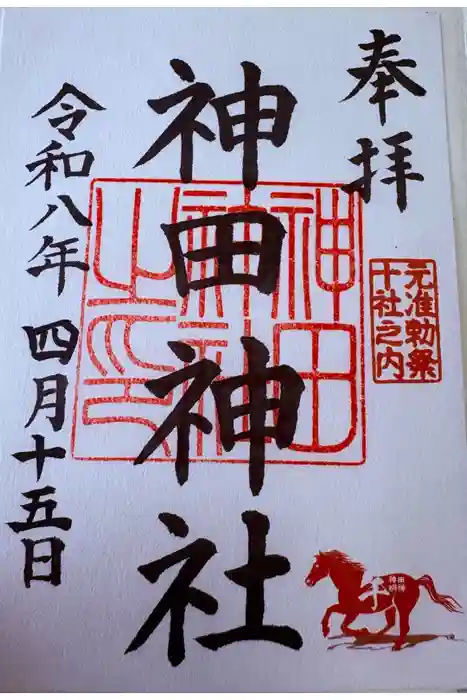 奉拝
元准勅祭
十社之内
神田神社
神田
神社
之印
令和八年 四月十五日